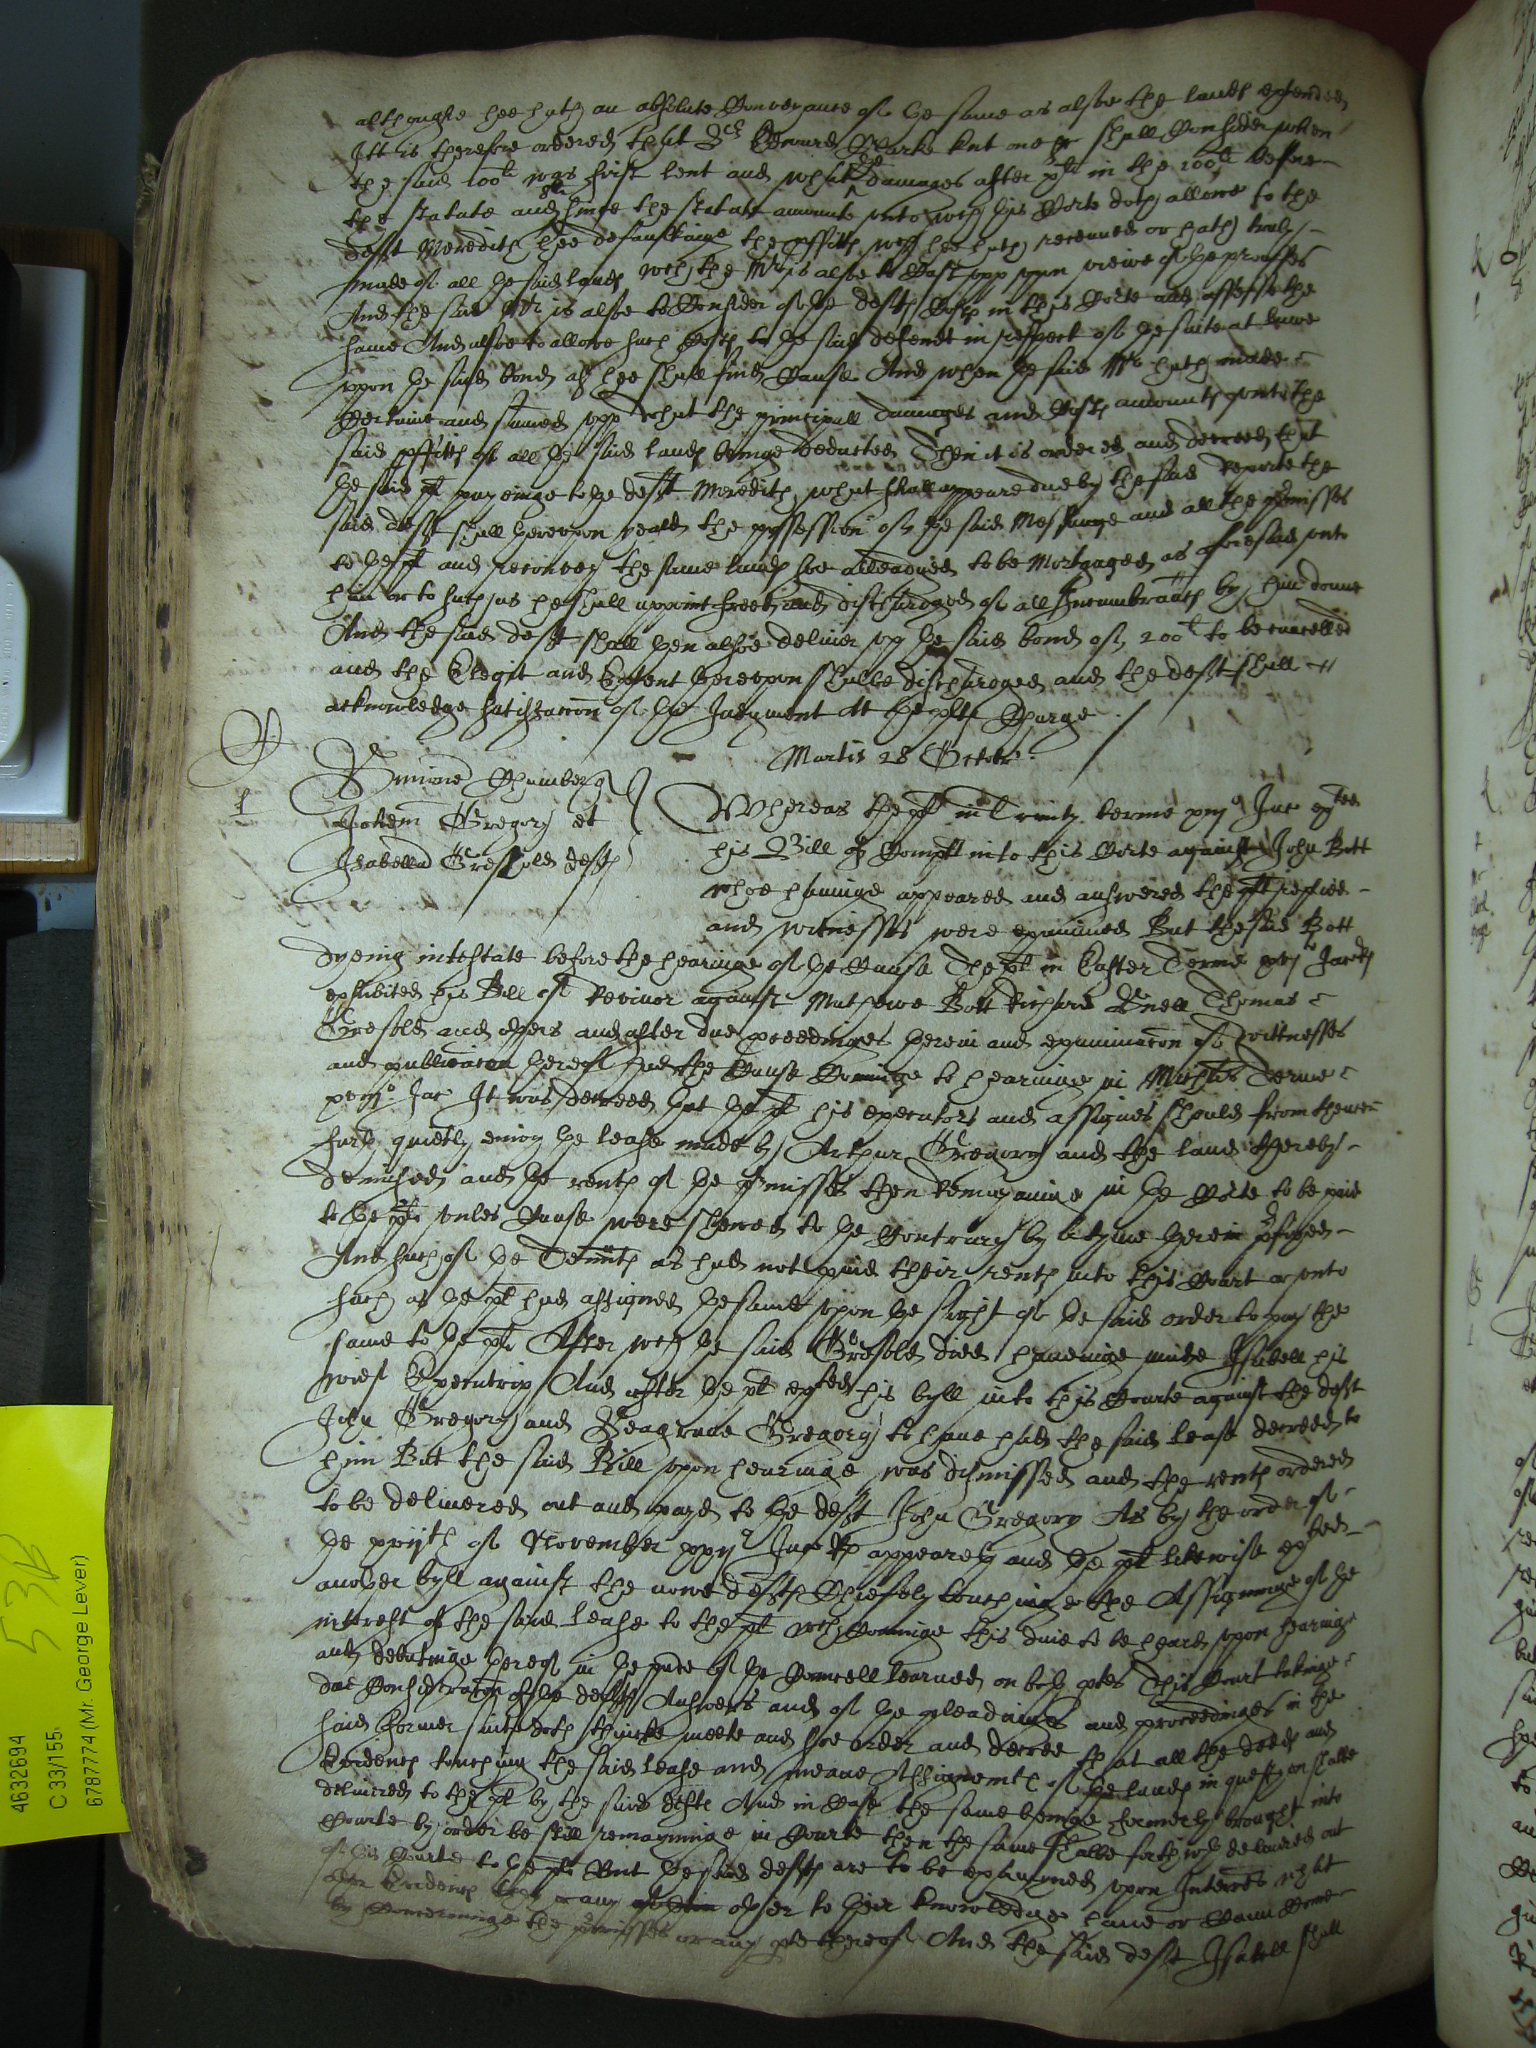 althoughe hee hath an absolute Conveyance of the same as alsoe the lands extended
Itt is therefore ordered that Sr Edward Clarke knt one &c shall Consider when
the said 100li was first lent and what damages after ye in the 100li before
the statute and since the statute amounts unto wch this Corte doth allowe to the
deft Meredith hee defaulkinge the pffitts wch hee hath receaved or hath truly
made of all the said lands wch the Mr is alsoe to Cast upp upon viewe of the prmisses
And the said Mr is alsoe to Consider of the defts Costs in this Corte and assesse the
same And alsoe to allowe such Costs to the said defendt in respect of the suite at lawe
uppon the said bond as hee shall find Cause And when the said Mr hath made
Certaine and sumed upp what the principall damages and Costs amounts unto the
said pffitts of all the said lands beinge deducted Then it is ordered and decreed that
the said plt payeinge to the deft Meredith what shall appeare due by the said reporte the
said deft shall thereupon yeald the possession of the said Messuage and all the prmisses
to the plt and reconvey the same lands soe alleadged to be Mortgaged as aforesaid unto
him or to such as he shall appoint freed and discharged of all Incumbrances by him donne
And the said deft shall then alsoe deliver up the said bond of 200li to be cancelled
and the Elegit and Extent thereupon shalbe discharged and the deft shall
acknowledge satisfaccon of the Judgment at the plts Charge
Martis 28 Octobr
Chamber qr
Johem Gregory et
Isabella Gresold defts
Whereas the plt in Trinity terme Jac exhted
his Bill of Complt into this Corte against John Bott
whoe havinge appeared and answered the plt replied
and witnesses were examined But the said Bott
dyeing intestate before the hearinge of the Cause The plt in Easter Terme Jacobi
exhibited his Bill of Revivor against Mathewe Bott Richard Thomas
Gresold and others and after due proceedinges therein and examinacon of wittnesses
and publicacon thereof had the Cause Cominge to hearinge in Michas Terme
Jac It was decreed that the plt his executors and assignes should from thence
furth quietly enioy the lease made by Arthur Gregory and the land thereby
demised and the rents of the prmisses then Remayninge in the Corte to be paid
to the plt unles Cause were shewed to the Contrary by a tyme therein prfixed
And such of the Tennts as had not paid their rents into this Court or unto
such as the plt had assigned the same upon the sight of the said order to pay the
same to the plt After wch the said Gresold died haveinge made Isabell his
wief Executrix And after the plt exhted his byll into this Courte against the deft
John Gregory and Gregory to have had the said lease decreed to
him But the said Bill upon hearinge was dismissed and the rents ordered
to be delivered out and payd to the deft John Gregory As by the order of
the of November Jac Rs appeareth and the plt likewise exhited
another byll against the nowe defts Chiefely touchinge the Assigninge of the
interest of the said lease to the plt wch Cominge this daie to be heard upon hearinge
and debatinge thereof in the prsnce of the Councell learned on both ptes This Court takinge
due Consideracon of the defts Answers and of the pleadings and proceedinges in the
said former suite doth thincke meete and soe order and decree that all the deeds and
Evidences touching the said lease and meane Assignemts of the lands in question shalbe
delivered to the plt by the said defts And in Case the same beinge formerly brought into
Courte by order be still remayninge in Courte then the same shalbe forthwth delivered out
of this Courte to the plt But the said defts are to be examyned upon Interrs what
Evidences they or any other to their knowledge have or Cann Come
by Concerninge the prmisses or any pte thereof And the said deft Isabell shall
53B
4632694
C 33/155
6787774 (Mr. George Lever)